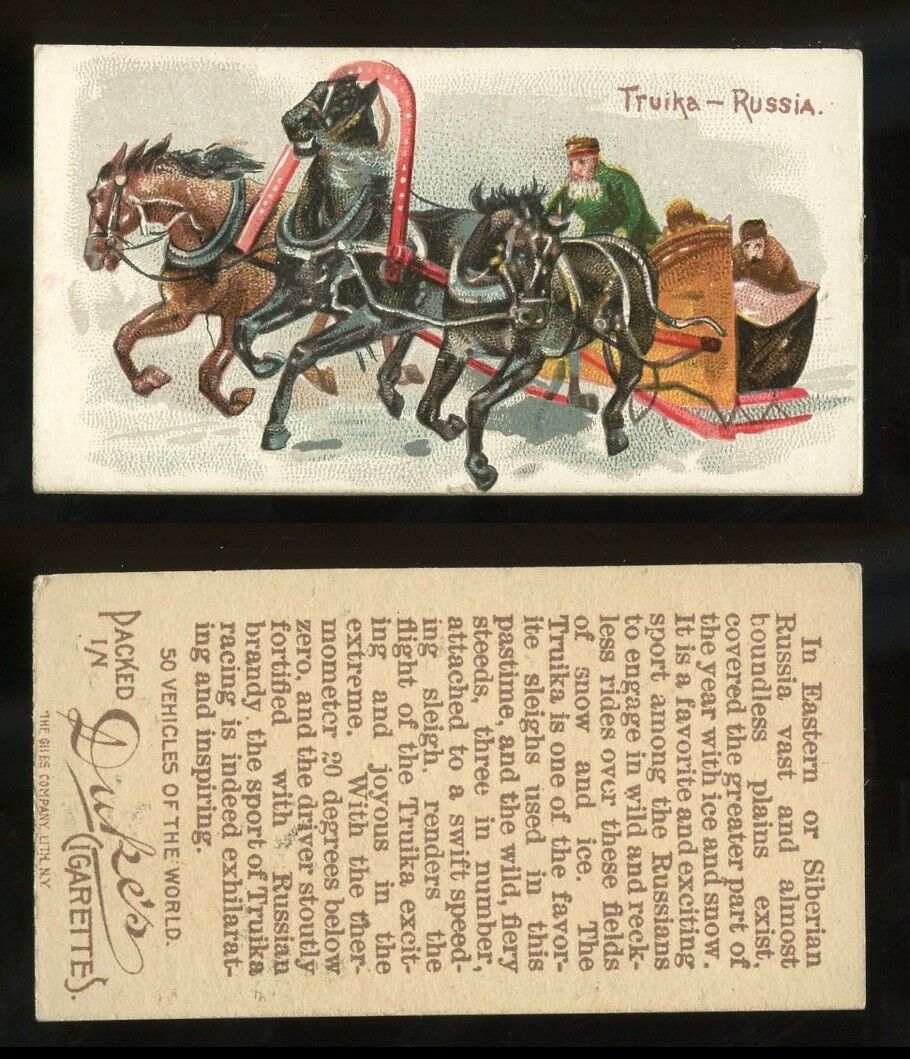 Truika – Russia.
In Eastern or Siberian
Russia vast and almost
boundless plains exist,
covered the greater part of
the year with ice and snow.
It is a favorite and exciting
sport among the Russians
to engage in wild and reck-
less rides over these fields
of snow and ice. The
Truika is one of the favor-
ite sleighs used in this
pastime, and the wild, fiery
steeds, three in number,
attached to a swift speed-
ing sleigh, renders the
flight of the Truika excit-
ing and joyous in the
extreme. With the ther-
mometer 20 degrees below
zero, and the driver stoutly
fortified with Russian
brandy, the sport of Truika
racing is indeed exhilarat-
ing and inspiring.
50 VEHICLES OF THE WORLD.
PACKED IN Duke's CIGARETTES.
THE GILES COMPANY, LITH. N.Y.